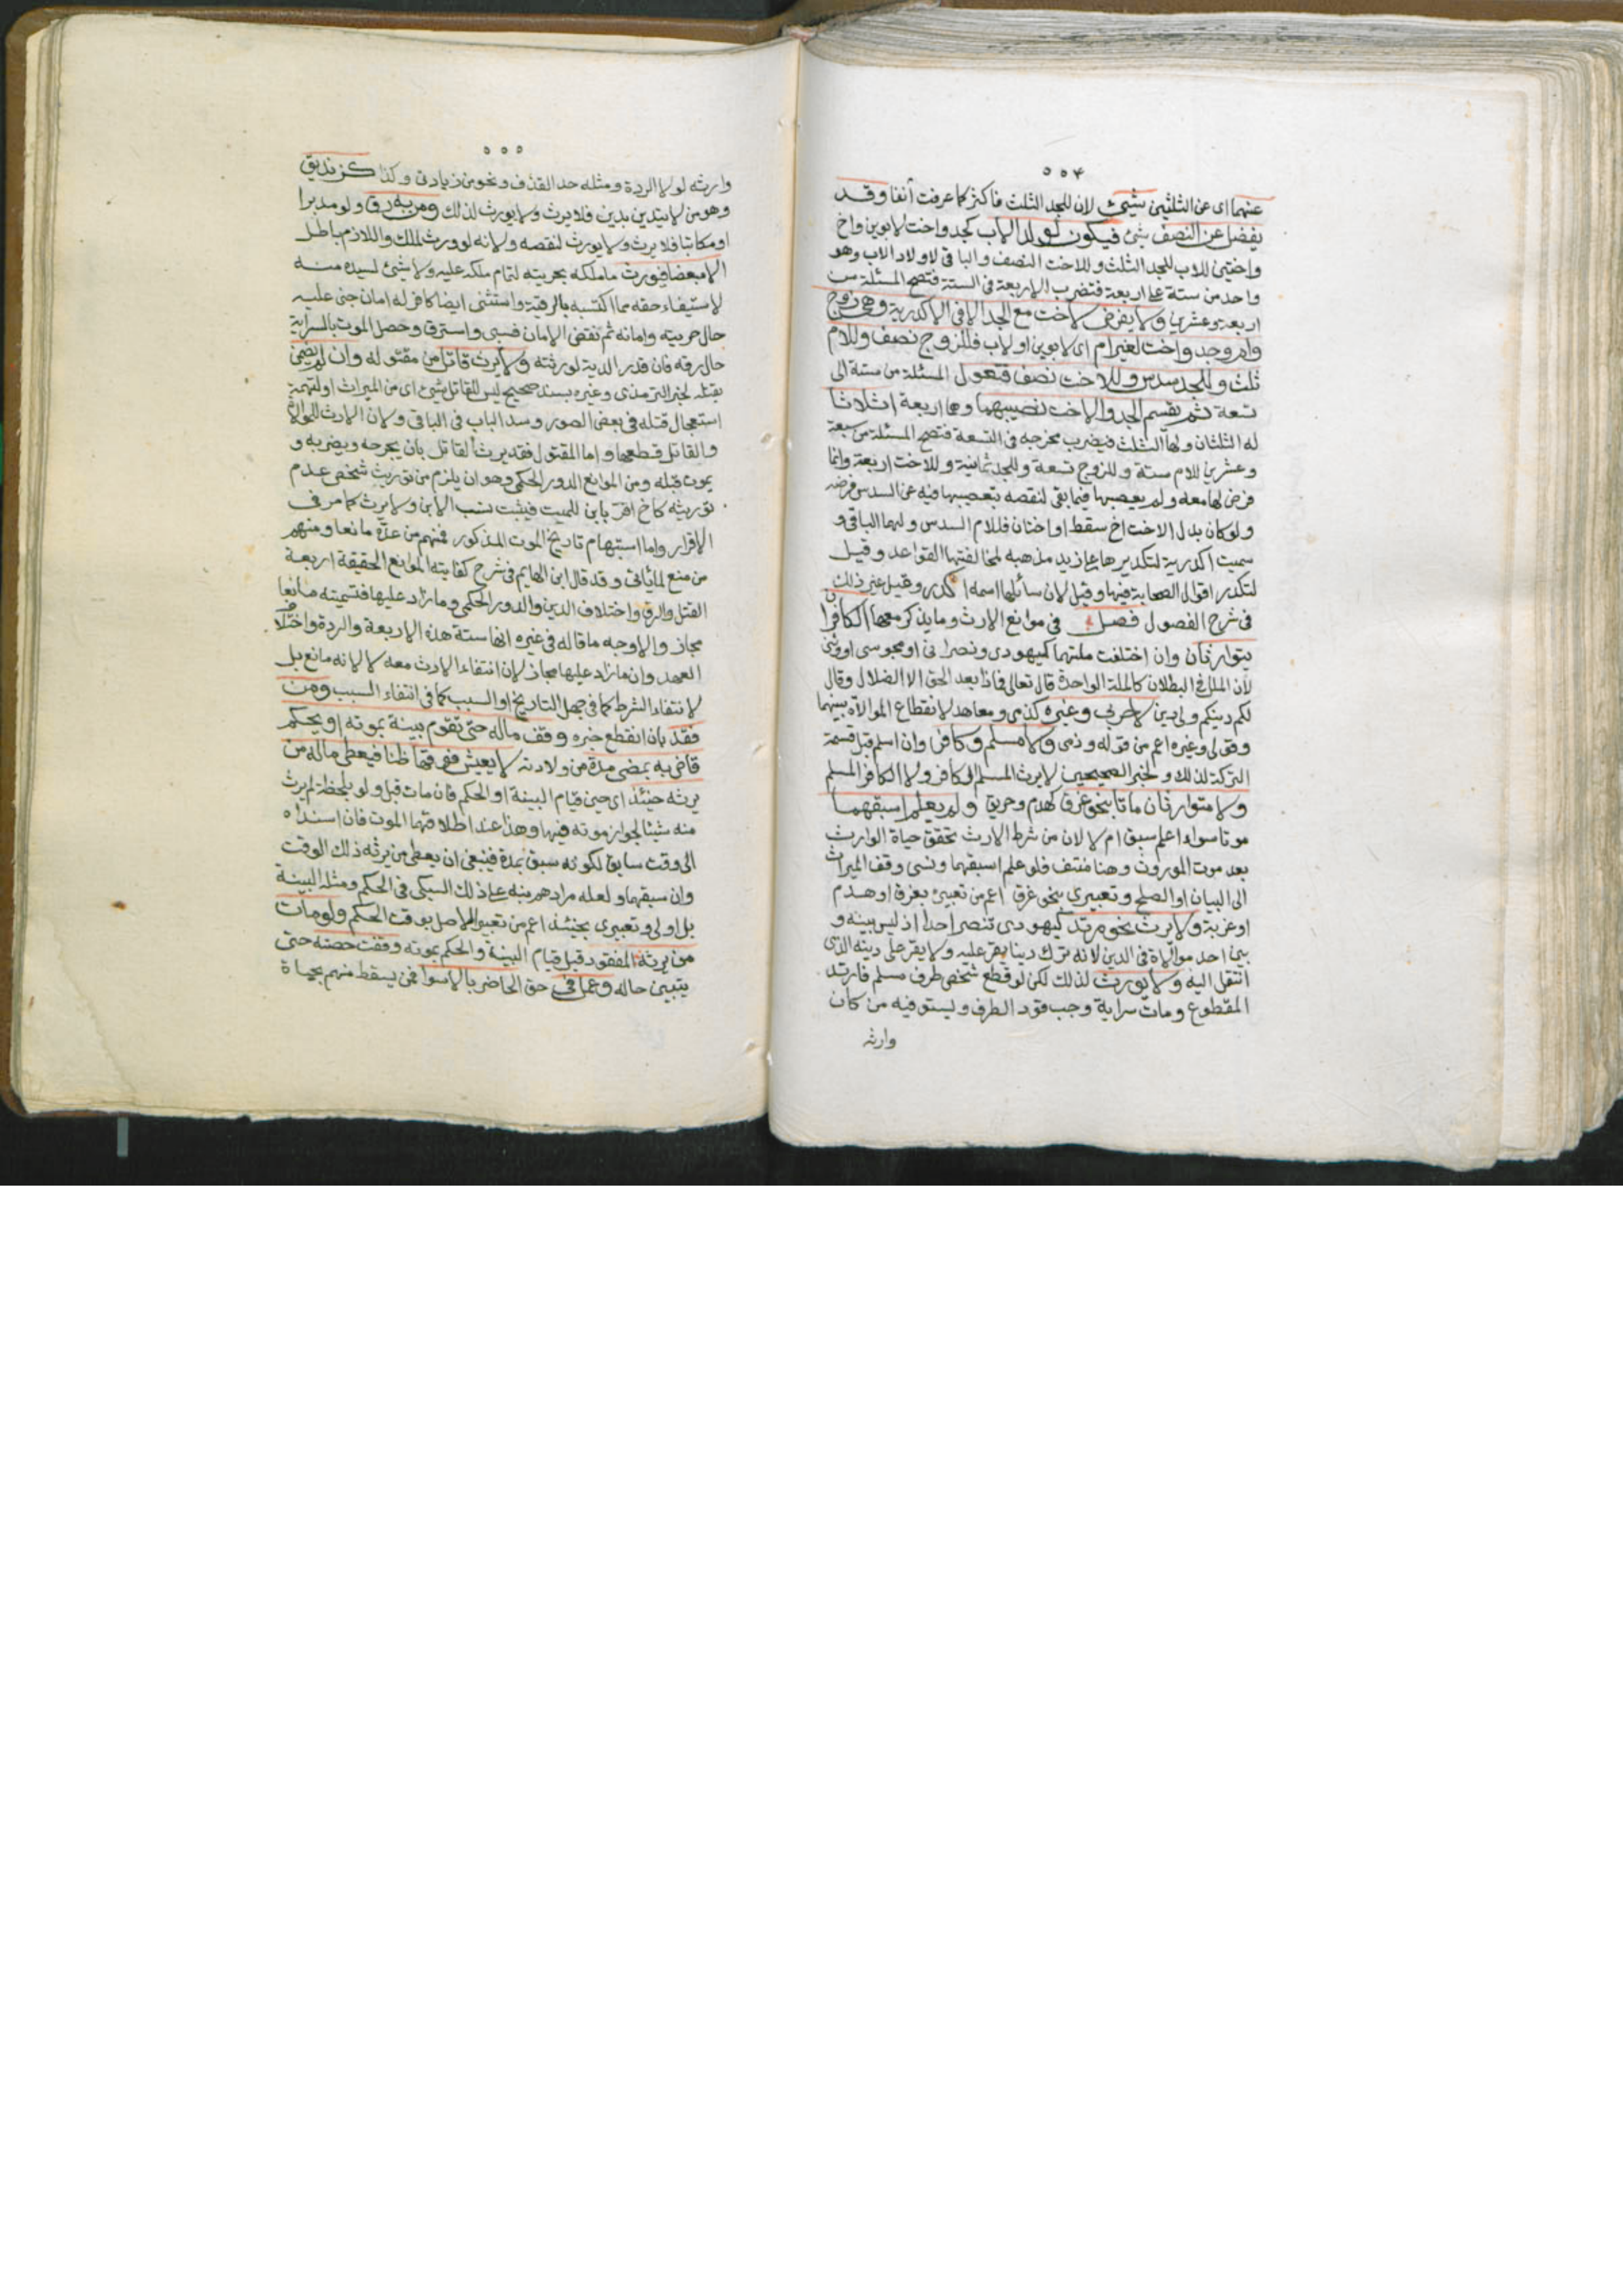 ٥٥٤
عنهما اى عن الثلثين شيئ لان للجد الثلث فاكثر كما عرفت أنفا وقد
يفضل عن النصف شئ فيكون لولد الاب كجد واخت لابوين واخ
واختين للاب للجد الثلث وللاخت النصف والباقى لاولاد الاب وهو
واحد من ستة على اربعة فتضرب الاربعة فى الستة فتصح المسئلة من
اربعة وعشرين ولا يفرض لاخت مع الجد الا فى الاكدرية وهى زوج
وام وجد واخت لغير ام اى لابوين او لاب فللزوج نصف وللام
ثلث وللجد سدس وللاخت نصف فتعول المسئلة من ستة الى
تسعة ثم يقسم الجد والاخت نصيبهما وهما اربعة اثلاثا
له الثلثان ولها الثلث فيضرب مخرجه فى التسعة فتصح المسئلة من سبعة
وعشرين للام ستة وللزوج تسعة وللجد ثمانية وللاخت اربعة وانما
فرض لها معه ولم يعصبها فيما بقى لنقصه بتعصيبها فيه عن السدس فرضه
ولو كان بدل الاخت اخ سقط او اختان فللام السدس ولهما الباقى و
سميت اكدرية لتكديرها على زيد مذهبه لمخالفتها القواعد وقيل
لتكدر اقوال الصحابة فيها وقيل لان سائلها اسمه اكدر وقيل غير ذلك
فى شرح الفصول فصل فى موانع الارث وما يذكر معها الكافران
يتوارثان وان اختلفت ملتهما كيهودى ونصرانى او مجوسى او وثنى
لان الملل فى البطلان كالملة الواحدة قال تعالى فماذا بعد الحق الا الضلال وقال
لكم دينكم ولى دين لا حربى وغيره كذمى ومعاهد لانقطاع الموالاة بينهما
وقولى وغيره اعم من قوله وذمى ولا مسلم وكافر وان اسلم قبل قسمة
التركة لذلك ولخبر الصحيحين لا يرث المسلم الكافر ولا الكافر المسلم
ولا متوارثان ماتا بنحو غرق كهدم وحريق ولم يعلم اسبقهما
موتا سواء اعلم سبق ام لا لان من شرط الارث تحقق حياة الوارث
بعد موت المورث وهنا منتف فلو علم اسبقهما ونسى وقف الميراث
الى البيان او الصلح وتعبيرى بنحو غرق اعم من تعبيره بغرق او هدم
او غربة ولا يرث نحو مرتد كيهودى تنصر احدا اذ ليس بينه و
بين احد موالاة فى الدين لانه ترك دينا يقر عليه ولا يقر على دينه الذى
انتقل اليه ولا يورث لذلك لكن لو قطع شخص طرف مسلم فارتد
المقطوع ومات سراية وجب قود الطرف ويستوفيه من كان
وارثه
٥٥٥
وارثه لولا الردة ومثله حد القذف ونحو من زيادتى وكذا كزنديق
وهو من لا يتدين بدين فلا يرث ولا يورث لذلك ومن به رق ولو مدبرا
او مكاتبا فلا يرث ولا يورث لنقصه ولانه لو ورث لملك واللازم باطل
الا مبعضا فيورث ما ملكه بحريته لتمام ملكه عليه ولا شيئ لسيده منه
لاستيفاء حقه مما اكتسبه بالرقية واستثنى ايضا كافر له امان جنى عليه
حال حريته وامانه ثم نقض الامان فسبى واسترق وحصل الموت بالسراية
حال رقه فان قدر الدية لورثته ولا يرث قاتل من مقتوله وان لم يضمن
بقتله لخبر الترمذى وغيره بسند صحيح ليس للقاتل شيئ اى من الميراث او لتهمة
استعجال قتله فى بعض الصور وسد الباب فى الباقى ولان الارث للموالاة
والقاتل قطعها واما المقتول فقد يرث القاتل بان يجرحه ويضربه و
يموت قبله ومن الموانع الدور الحكمى وهو ان يلزم من توريث شخص عدم
توريثه كاخ اقر بابن للميت فيثبت نسب الابن ولا يرث كما مر فى
الاقرار واما استبهام تاريخ الموت المذكور فمنهم من عده مانعا ومنهم
من منع لما يأتى وقد قال ابن الهايم فى شرح كفايته الموانع الحقيقة اربعة
القتل والرق واختلاف الدين والدور الحكمى وما زاد عليها فتسميته مانعا
مجاز والاوجه ما قاله فى غيره انها ستة هذه الاربعة والردة واختلاف
العهد وان ما زاد عليها مجاز لان انتفاء الارث معه لا لانه مانع بل
لانتفاء الشرط كما فى جهل التاريخ او السبب كما فى انتفاء السبب ومن
فقد بان انقطع خبره وقف ماله حتى تقوم بينة بموته او يحكم
قاض به بمضى مدة من ولادته لا يعيش فوقها ظنا فيعطى ماله من
يرثه حينئذ اى حين قيام البينة او الحكم فان مات قبل ولو بلحظة لم يرث
منه شيئا لجواز موته فيها وهذا عند اطلاقهما الموت فان اسنداه
الى وقت سابق لكونه سبق بمدة فينبغى ان يعطى من يرثه ذلك الوقت
وان سبقهما ولعله مرادهم نبه على ذلك السبكى فى الحكم ومثله البينة
بل اولى وتعبيرى بحينئذ اعم من تعبير الاصل بوقت الحكم ولو مات
من يرثه المفقود قبل قيام البينة والحكم بموته وقفت حصته حتى
يتبين حاله وعمل فى حق الحاضر بالاسوا فمن يسقط منهم بحياة